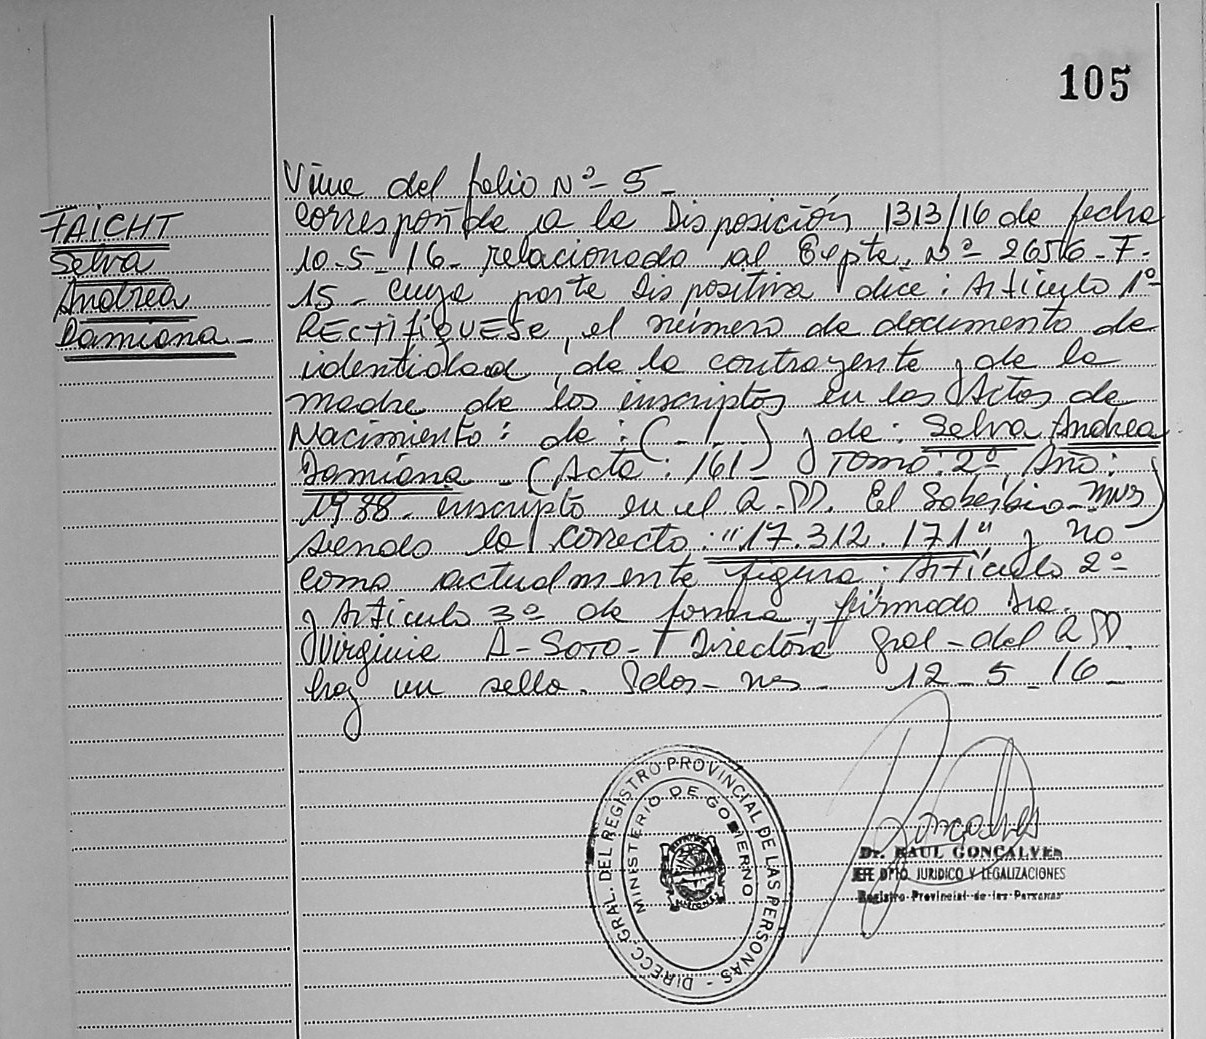 105
FAICHT
Selva
Andrea
Damiana -
Viene del folio Nº - 5 -
corresponde a la Disposición 1313/16 de fecha
10-5-16- relacionado al Expte. Nº 26516-F-
15- cuya parte dispositiva dice: Artículo 1º
RECTIFÍQUESE, el número de documento de
identidad, de la contrayente y de la
madre de los inscriptos en las Actas de
Nacimiento: de: (-/-) y de: Selva Andrea
Damiana - (Acta: 161) Tomo: 2º, Año:
1988- inscripto en el R.PP. El Soberbio-Mnes)
siendo lo correcto: "17.312.171" y no
como actualmente figura; Artículo 2º
y Artículo 3º de forma, firmado Dra.
Virginia A- SOTO- Directora Gral-del R PP.
hay un sello. Pdas-Mnes- 12-5-16-
DIRECC. GRAL. DEL REGISTRO PROVINCIAL DE LAS PERSONAS -
MINISTERIO DE GOBIERNO
MISIONES
Dr. RAUL GONCALVES
JEFE DPTO. JURIDICO Y LEGALIZACIONES
Registro Provincial de las Personas